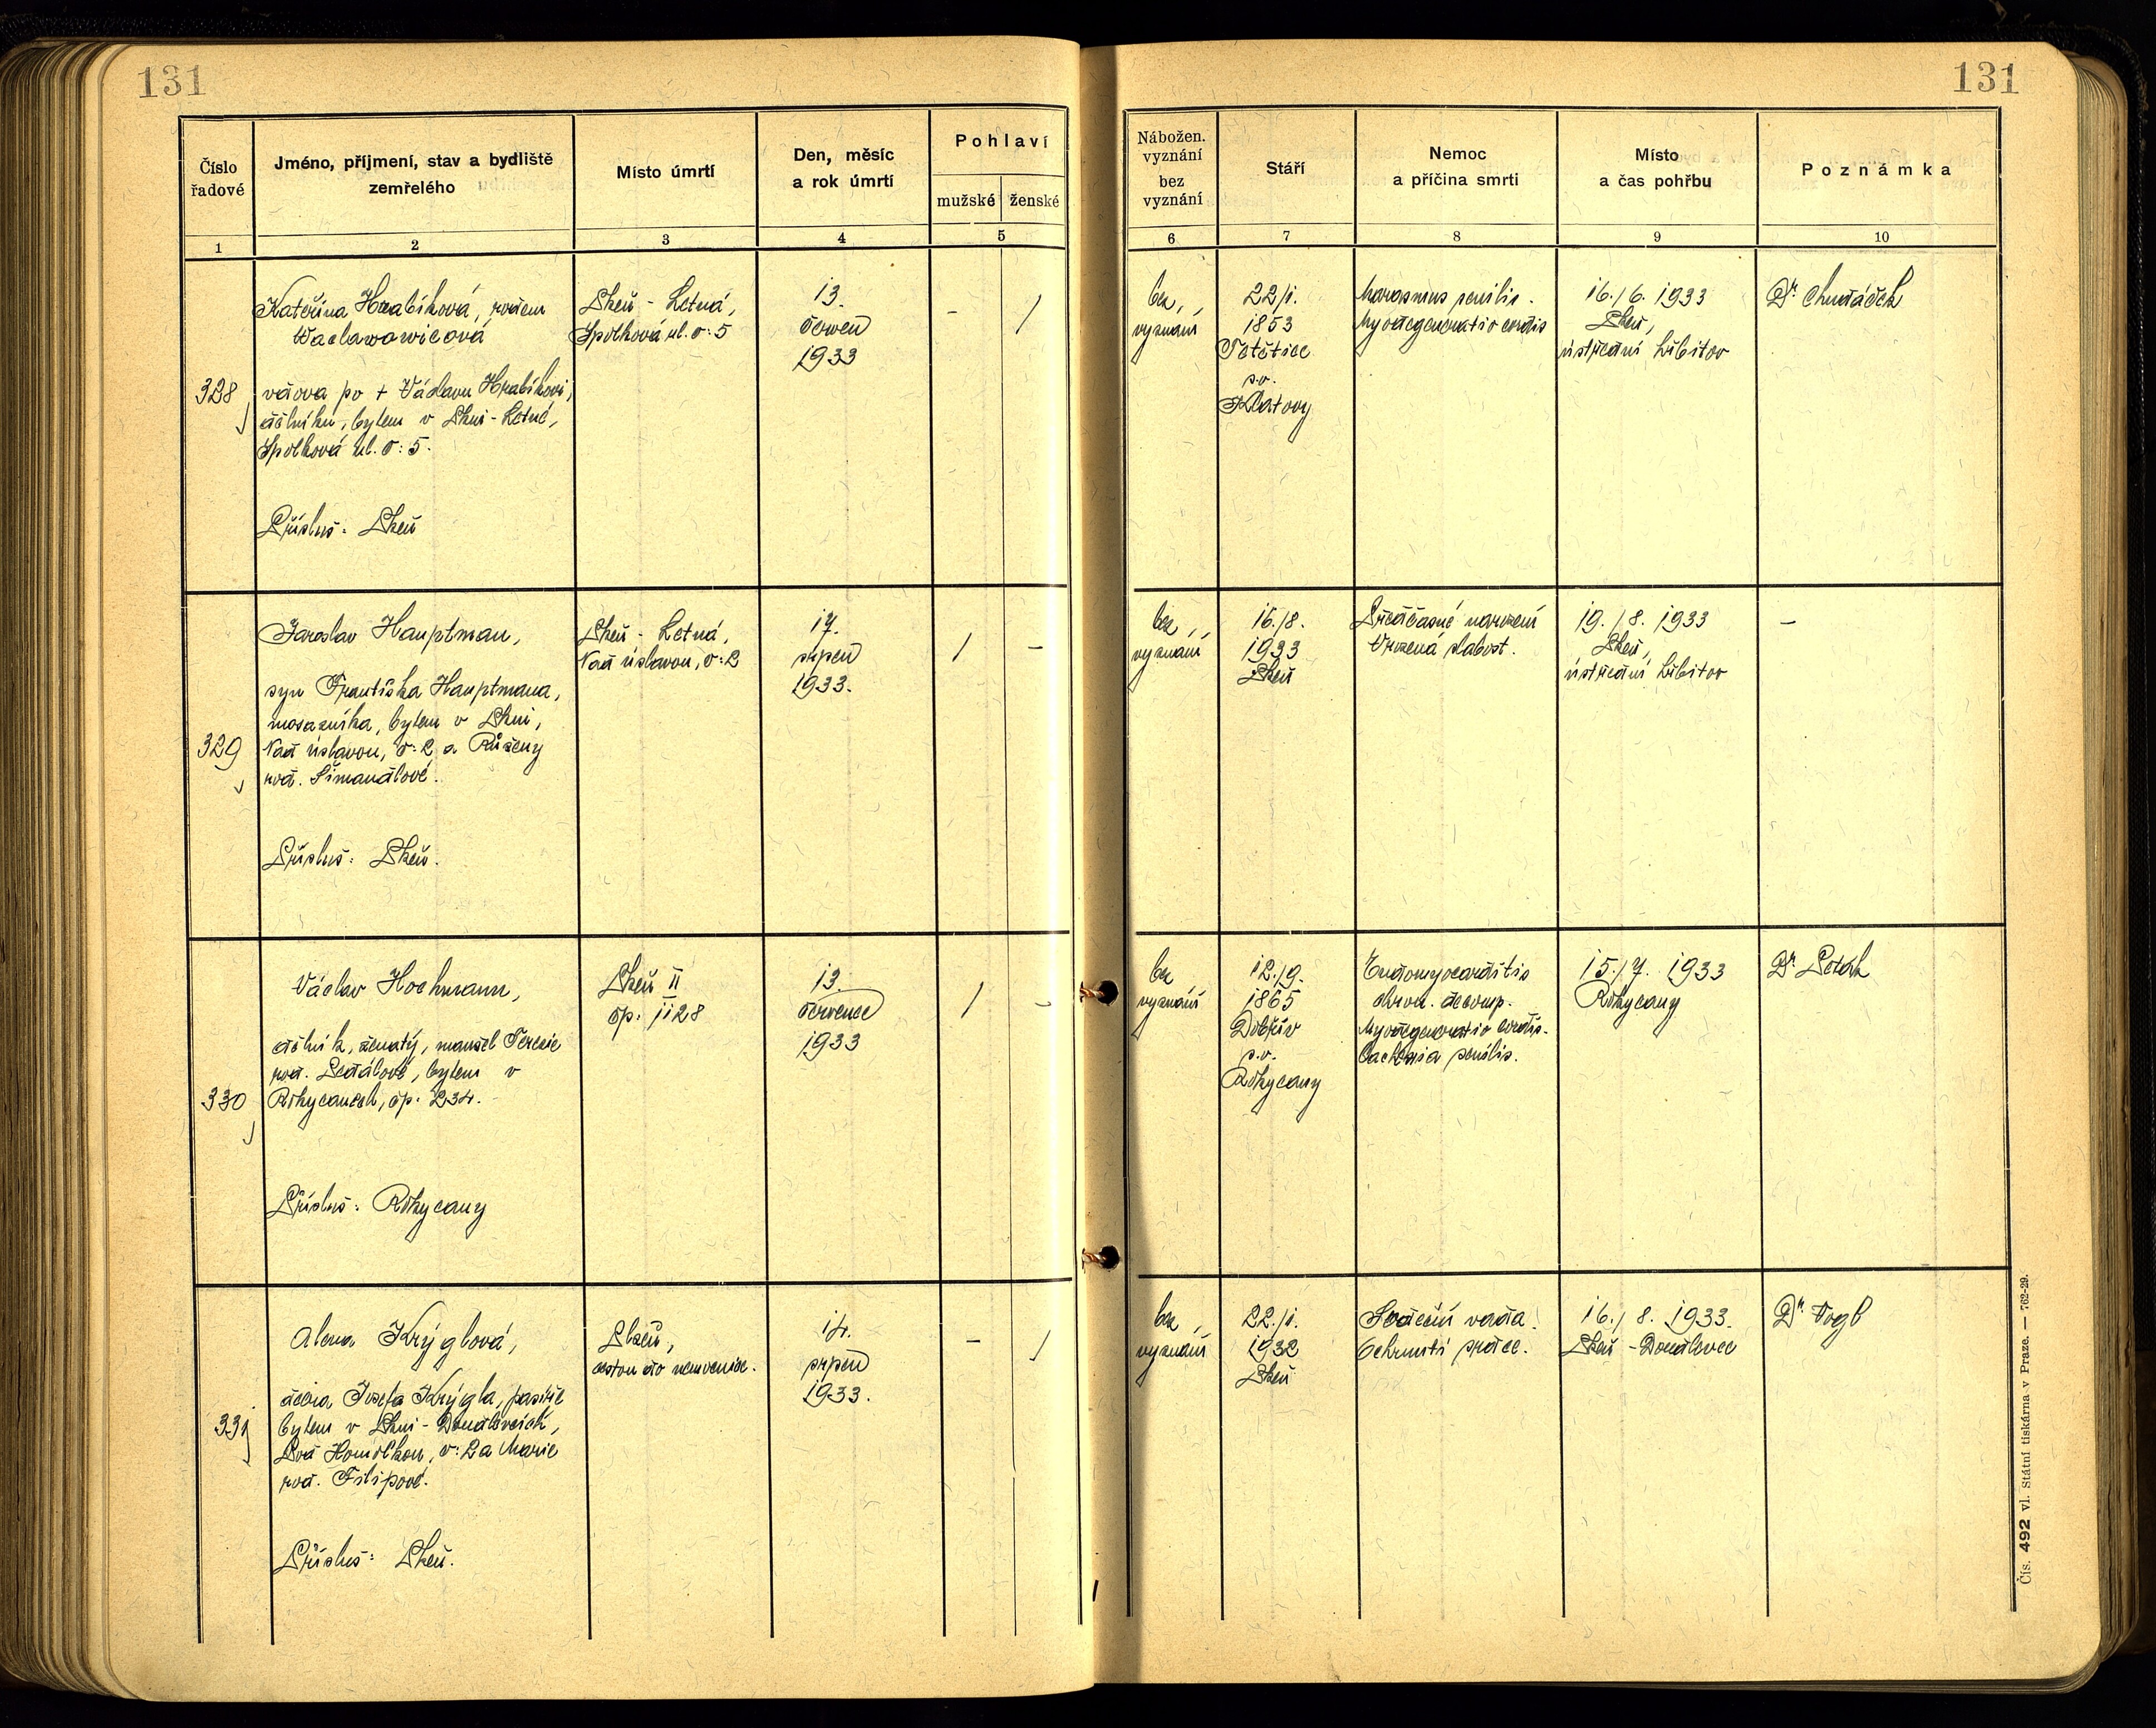 131
131
Číslo
řadové
Jméno, příjmení, stav a bydliště
zemřelého
Místo úmrtí
Den, měsíc
a rok úmrtí
Pohlaví
mužské
ženské
Nábožen.
vyznání
bez
vyznání
Stáří
Nemoc
a příčina smrti
Místo
a čas pohřbu
Poznámka
1
2
3
4
5
6
7
8
9
10
328
Kateřina Hrabíková, rodem
Waclawowicová
vdova po + Václavu Hrabíkovi,
dělníku, bytem v Plzni-Letné,
Spolková ul. č: 5.
Přísluš: Plzeň
Plzeň - Letná,
Spolková ul. č: 5
13.
červen
1933
-
/
bez
vyznání
22/1.
1853
Tětětice
p.o.
Klatovy
Marasmus senilis.
Myodegeneratio cordis
16./6. 1933
Plzeň,
ústřední hřbitov
Dr. Chudáček
329
Jaroslav Hauptman,
syn Františka Hauptmana,
mosazníka, bytem v Plzni,
Nad úslavou, č: 2 a Růženy
roz. Šimandlové.
Přísluš: Plzeň.
Plzeň - Letná,
Nad úslavou, č: 2
17.
srpen
1933.
/
-
bez
vyznání
16./8.
1933
Plzeň
Předčasné narození
Vrozená slabost.
19./8. 1933
Plzeň,
ústřední hřbitov
-
330
Václav Hochmann,
dělník, ženatý, manžel Terezie
roz. Sedálové, bytem v
Rokycanech, čp: 234.
Přísluš: Rokycany
Plzeň II
čp: 1128
13.
července
1933
/
-
bez
vyznání
12./9.
1865
Dobřív
p.o.
Rokycany
Endomyocarditis
chron. decomp.
Myodegeneratio cordis.
Cachexia senilis.
15./7. 1933
Rokycany
Dr.
331
Alena Krýglová,
dcera Josefa Krýgla, pasíře
bytem v Plzni - Doudlevcích,
Pod Homolkou, č: 2 a Marie
roz. Filipové.
Přísluš: Plzeň.
Plzeň,
cestou do nemocnice.
14.
srpen
1933.
-
/
bez
vyznání
22./1.
1932
Plzeň
Srdeční vada.
Ochrnutí srdce.
16./8. 1933.
Plzeň - Doudlevce
Dr. Vogl
Čís. 492 vl. Státní tiskárna v Praze. — 762-29.